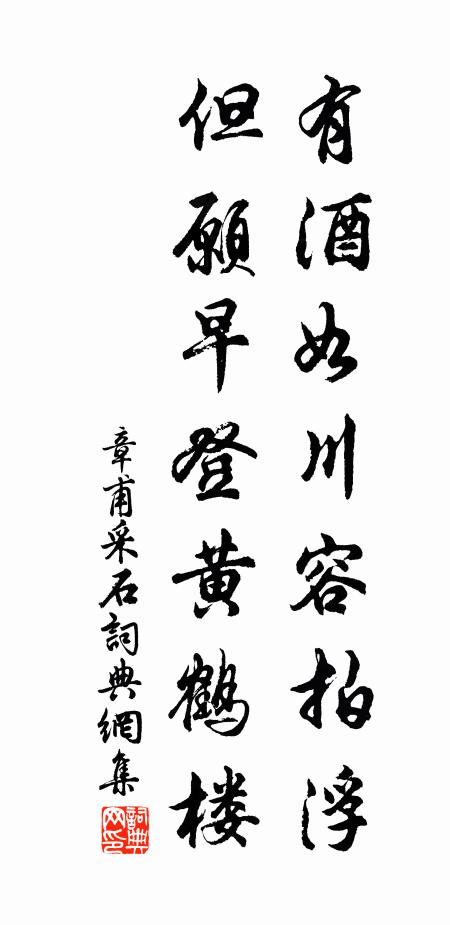 有酒如川容拍浮
但願早登黄鶴楼
章甫采石詞典網集
詞典网印